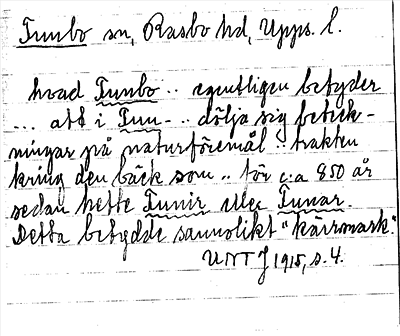 Tunbo sn, Rasbo hd, Upps. l.
hvad Tunbo .. egentligen betyder
... att i Tun- .. dölja sig beteck-
ningar på naturföremål .. trakten
kring den bäck som .. för c:a 850 år
sedan hette Tunir eller Tunar.
Detta betydde sannolikt "kärrmark."
UNT J 1915, s. 4.